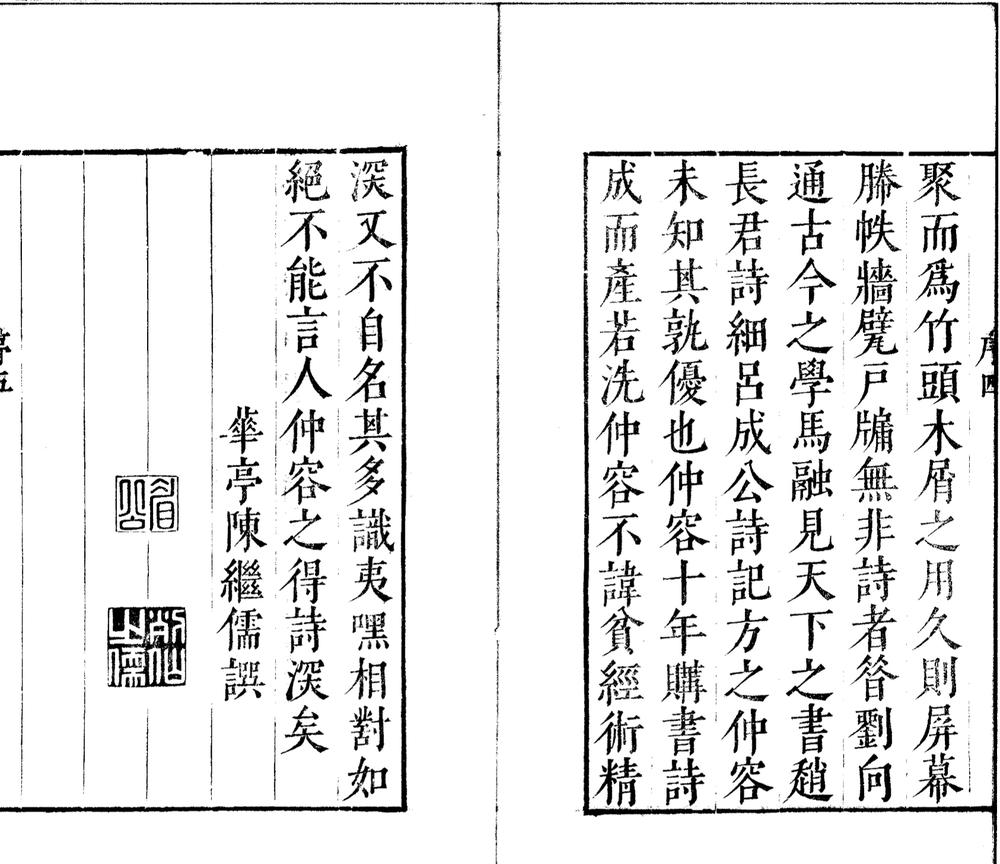 聚而爲竹頭木屑之用久則屏幕
縢帙牆壁戸牖無非詩者昝劉向
通古今之學馬融見天下之書趙
長君詩細呂成公詩記方之仲容
未知其孰優也仲容十年購書詩
成而產若洗仲容不諱貧經術精
深又不自名其多識夷嘿相對如
絕不能言人仲容之得詩深矣
華亭陳繼儒譔
眉公
序四
序五